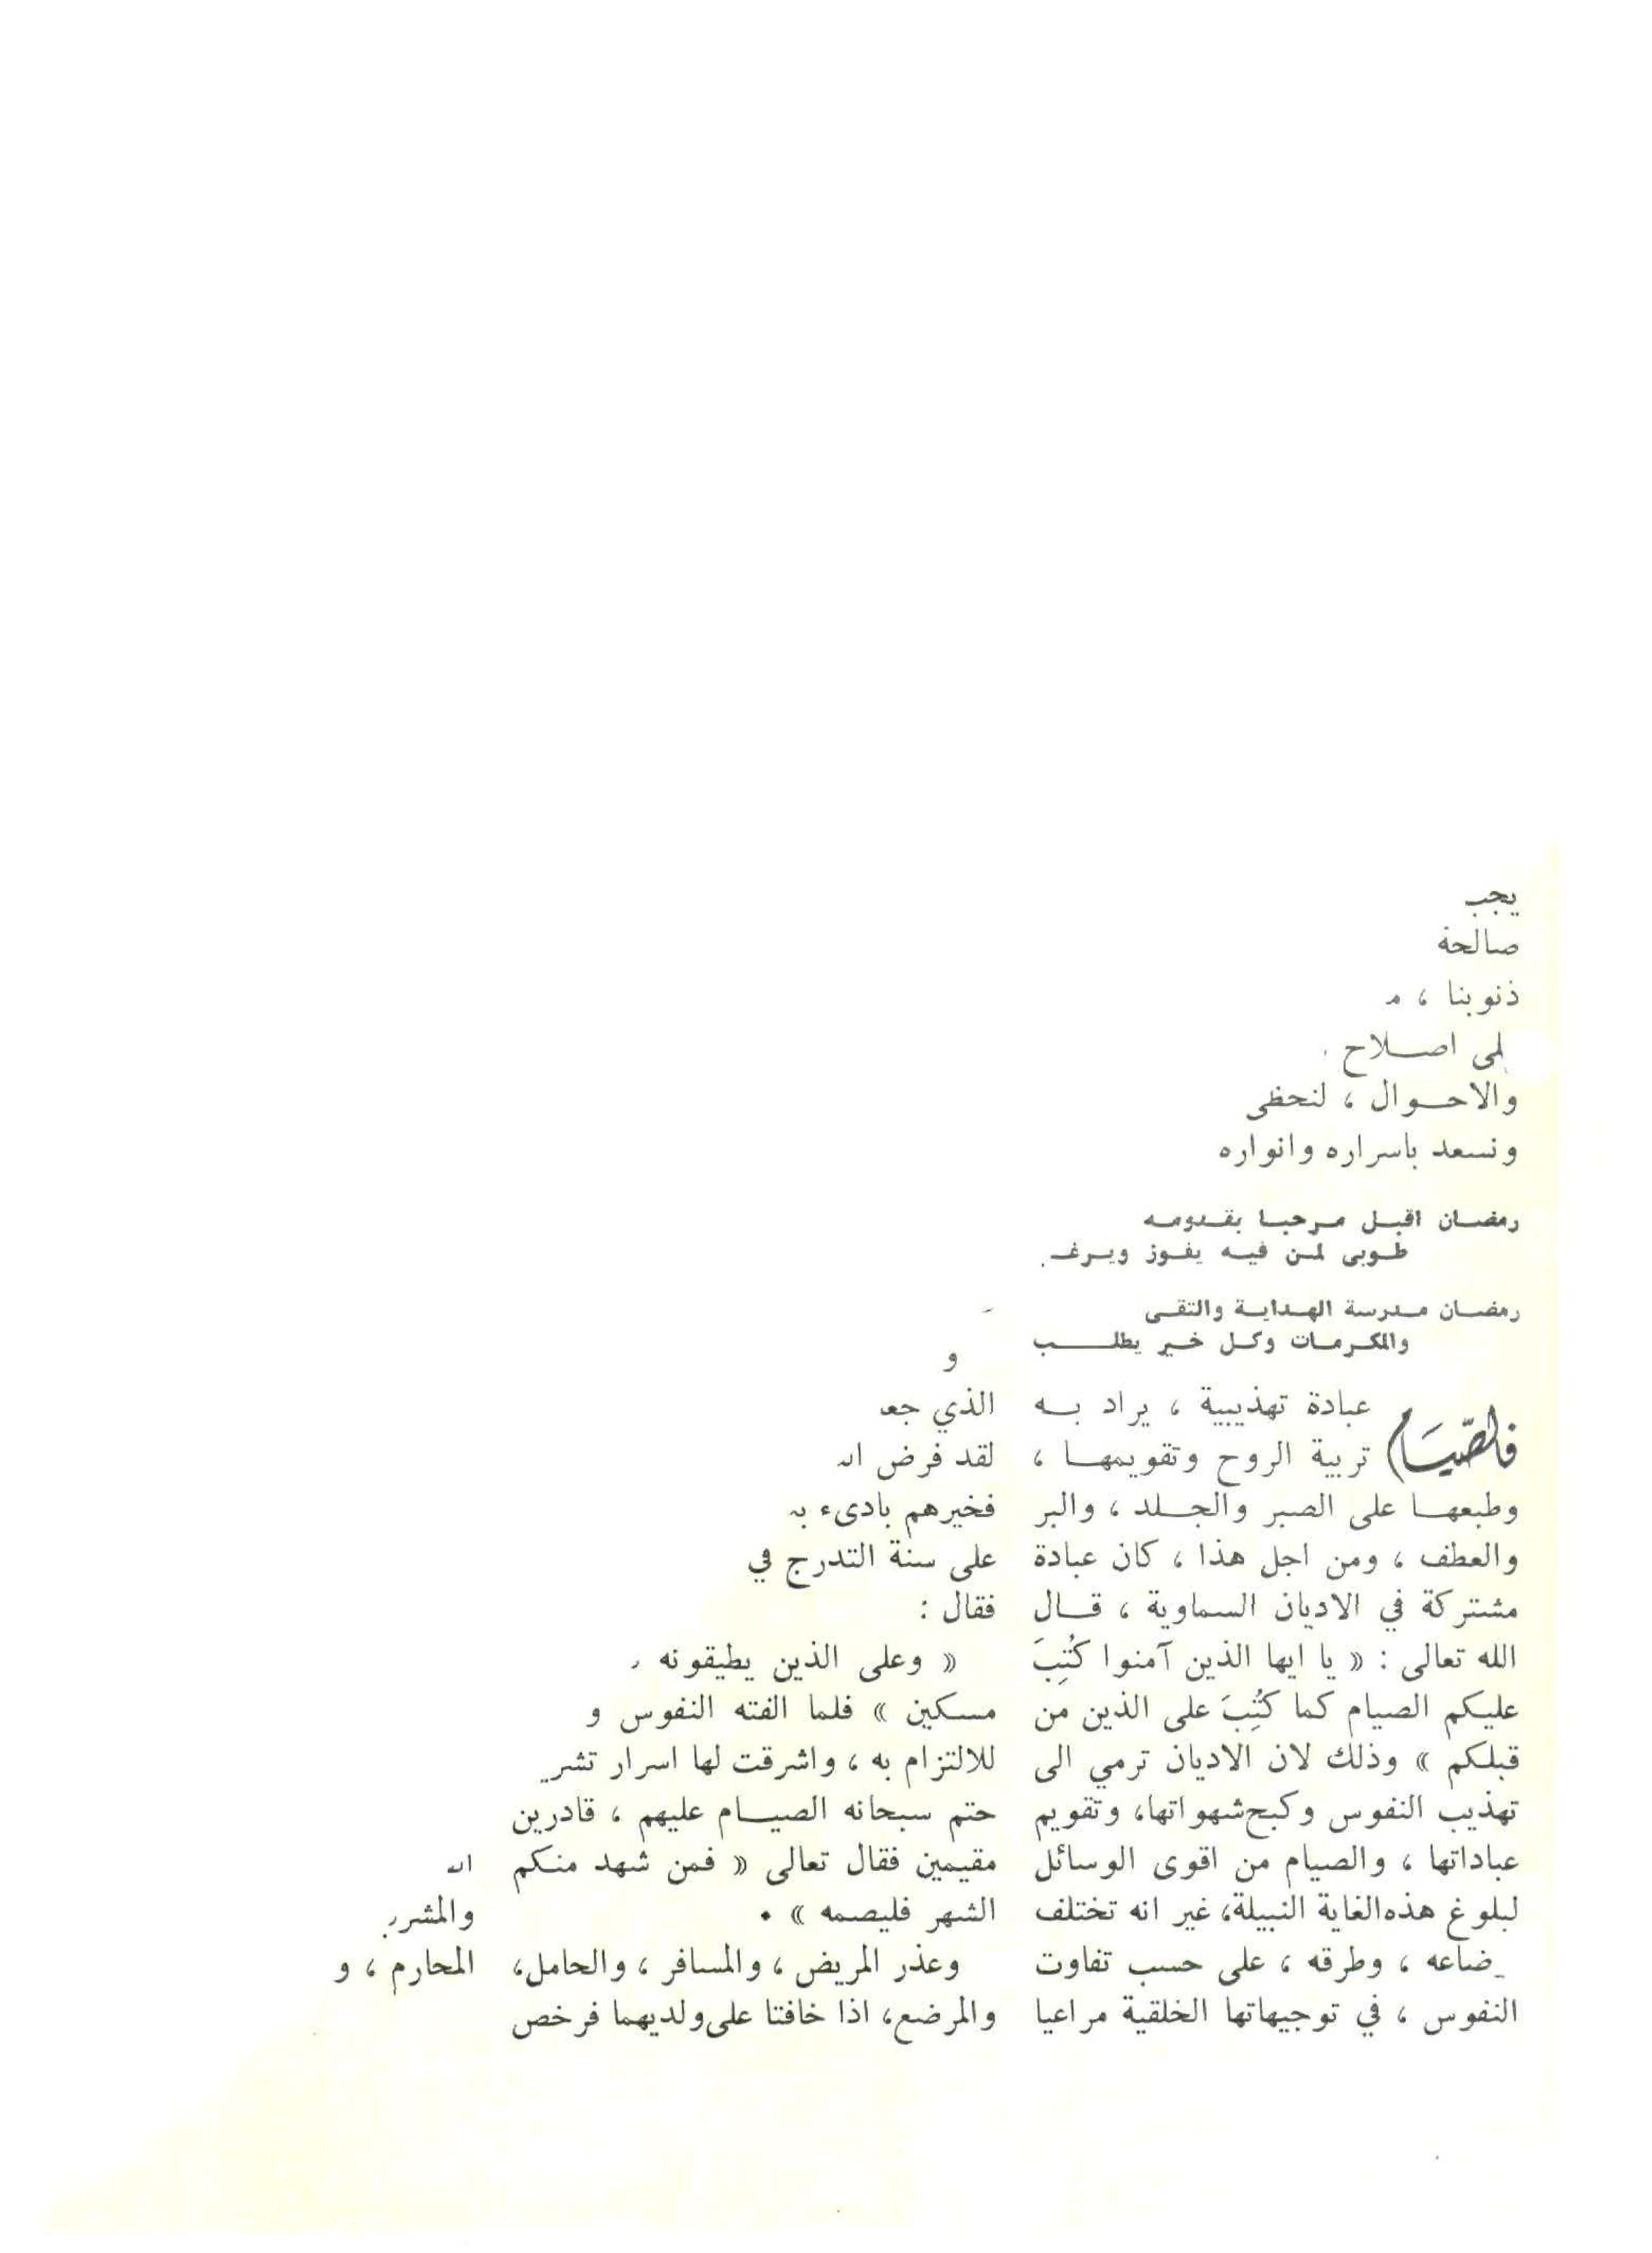 يجب
صالحة
ذنوبنا ،
اصـــلاح
والاحـــوال ، لنحظى
ونسعد باسراره وانواره
رمضــان اقبــل مـرحبــا بقــدومــه
طــوبى لمـن فيــه يفــوز
رمضــان مــدرسة الهــدايــة والتقــى
والمكــرمــات وكــل خــير يطلـــــب
فالصّيَام عبادة تهذيبية ، يراد بــه
تربية الروح وتقويمهــا ،
وطبعهــا على الصبر والجــلد ، والبر
والعطف ، ومن اجل هذا ، كان عبادة
مشتركة في الاديان السماوية ، قــال
الله تعالى : « يا ايها الذين آمنوا كُتِبَ
عليكم الصيام كما كُتِبَ على الذين من
قبلكم » وذلك لان الاديان ترمي الى
تهذيب النفوس وكبح شهواتها، وتقويم
عباداتها ، والصيام من اقوى الوسائل
لبلوغ هذه الغاية النبيلة، غير انه تختلف
وطرقه ، على حسب تفاوت
النفوس ، في توجيهاتها الخلقية مراعيا
و
الذي
لقد فرض
فخيرهم بادىء
على سنة التدرج في
فقال :
« وعلى الذين يطيقونه
مسكين » فلما الفته النفوس و
للالتزام به ، واشرقت لها اسرار
حتم سبحانه الصيــام عليهم ، قادرين
مقيمين فقال تعالى « فمن شهد منكم
الشهر فليصمه » •
وعذر المريض ، والمسافر ، والحامل،
والمرضع، اذا خافتا على ولديهما فرخص
المحارم ، و